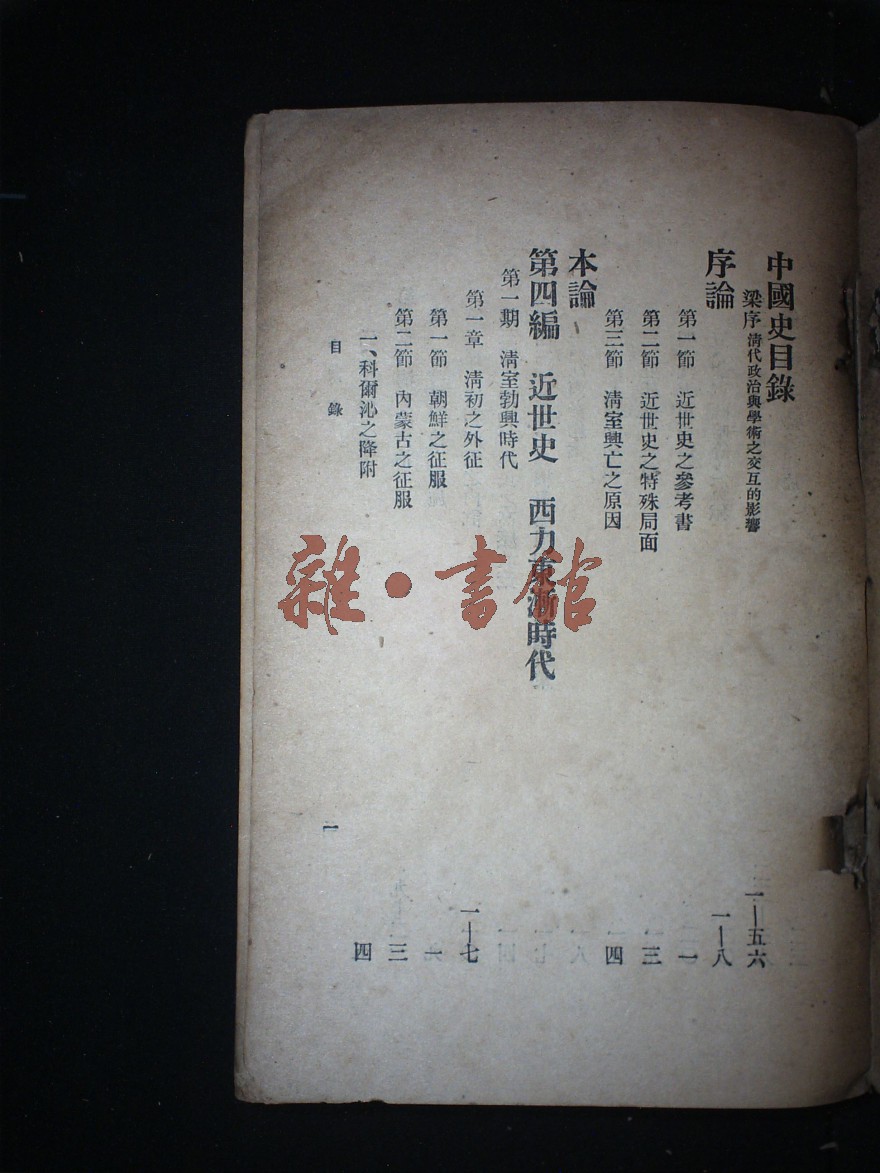 中國史目錄
梁序 清代政治與學術之交互的影響 一—五六
序論 一—八
第一節 近世史之參考書 一
第二節 近世史之特殊局面 三
第三節 淸室興亡之原因 四
本論
第四編 近世史 西力東漸時代
第一期 淸室勃興時代
第一章 淸初之外征 一—七
第一節 朝鮮之征服 一
第二節 內蒙古之征服 三
一、科爾沁之降附 四
目錄 一
雜·書館